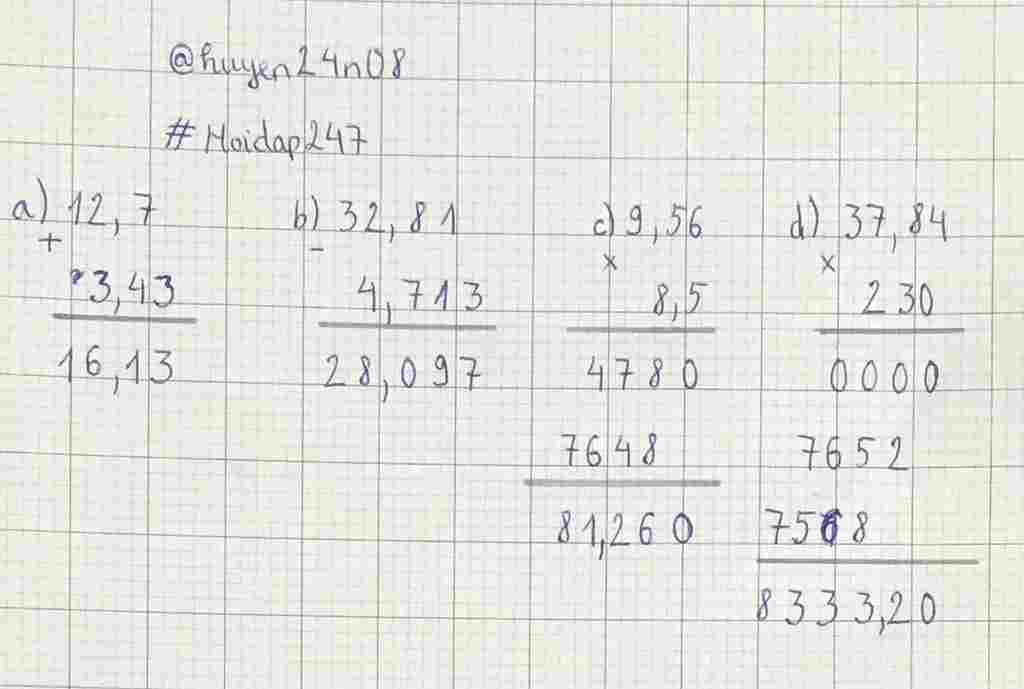 @huyen24n08
#Hoidap247
a) 12,7 b) 32,81 c) 9,56 d) 37,84
+ - x x
3,43 4,713 8,5 230
16,13 28,097 4780 0000
7648 7652
81,260 7568
8333,20